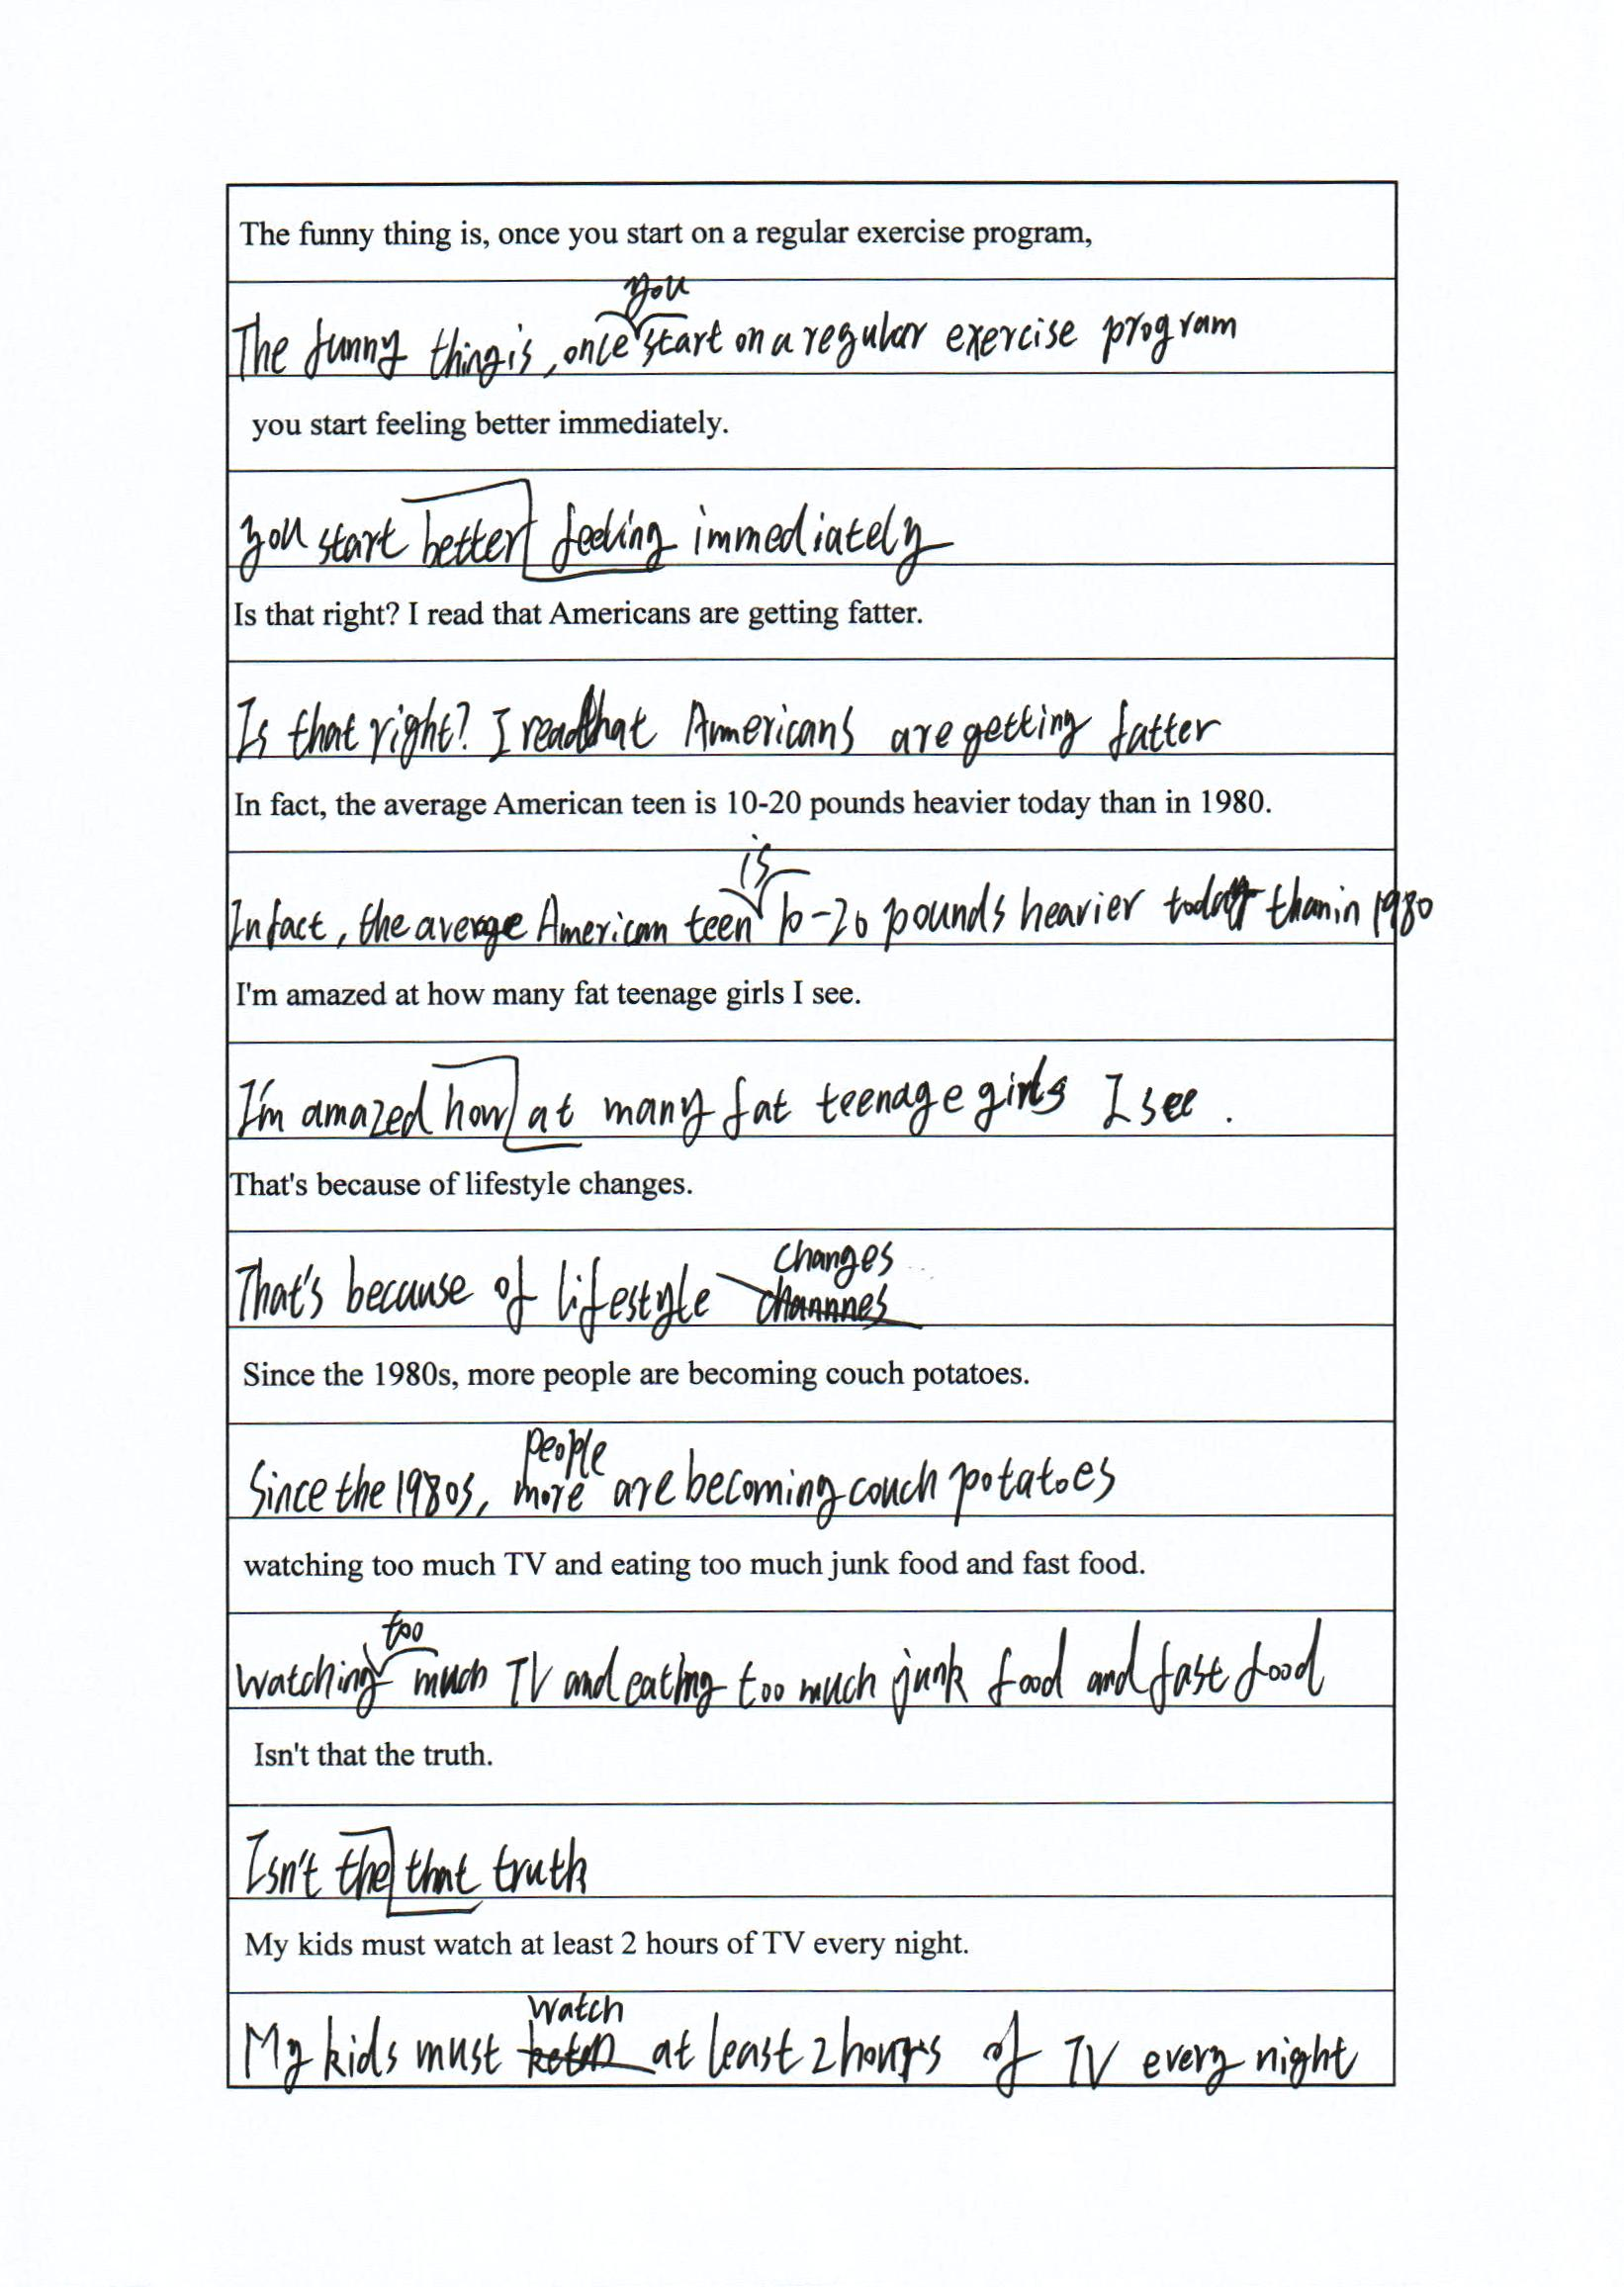 The funny thing is, once you start on a regular exercise program,
The funny thing is, once you start on a regular exercise program
you start feeling better immediately.
you start better feeling immediately
Is that right? I read that Americans are getting fatter.
Is that right? I read that Americans are getting fatter
In fact, the average American teen is 10-20 pounds heavier today than in 1980.
In fact, the average American teen is 10-20 pounds heavier today than in 1980
I'm amazed at how many fat teenage girls I see.
I'm amazed how at many fat teenage girls I see.
That's because of lifestyle changes.
That's because of lifestyle changes
Since the 1980s, more people are becoming couch potatoes.
Since the 1980s, more people are becoming couch potatoes
watching too much TV and eating too much junk food and fast food.
watching too much TV and eating too much junk food and fast food
Isn't that the truth.
Isn't the that truth
My kids must watch at least 2 hours of TV every night.
My kids must watch at least 2 hours of TV every night